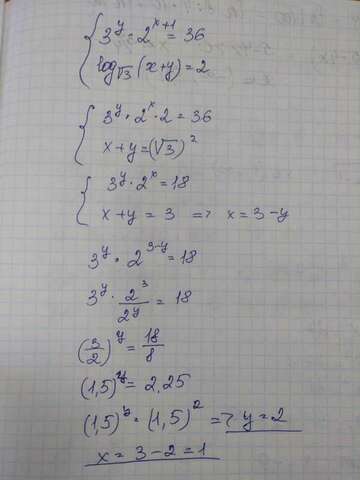 { 3^y · 2^(x+1) = 36
log_√3 (x+y) = 2
{ 3^y · 2^x · 2 = 36
x + y = (√3)^2
{ 3^y · 2^x = 18
x + y = 3 => x = 3 - y
3^y · 2^(3-y) = 18
3^y · 2^3/2^y = 18
(3/2)^y = 18/8
(1,5)^y = 2,25
(1,5)^y = (1,5)^2 => y = 2
x = 3 - 2 = 1